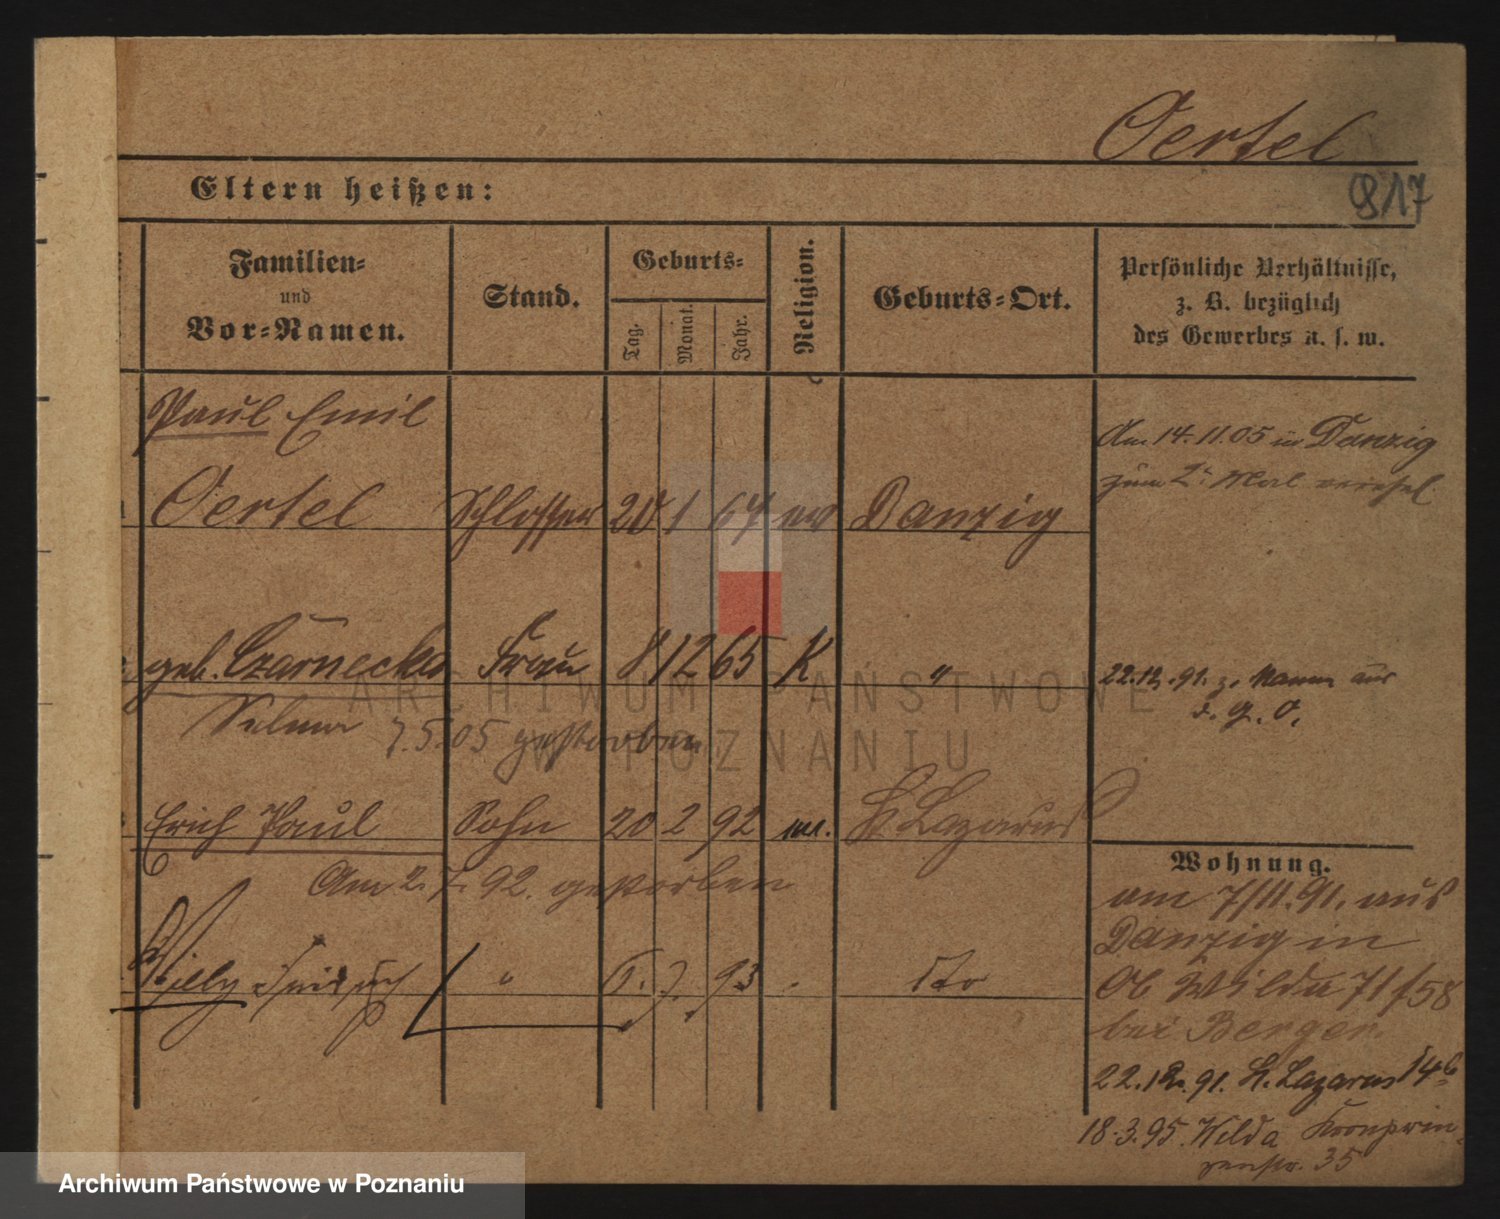 Oertel
817
Eltern heißen:
Familien=
und
Vor=Namen.
Stand.
Geburts=
Tag.
Monat.
Jahr.
Religion.
Geburts=Ort.
Persönliche Verhältnisse,
z. B. bezüglich
des Gewerbes u. s. w.
Paul Emil
Oertel Schlosser 20 1 64 ev Danzig
Am 14.11.05 in Danzig
zum 2. Mal
geb. Czarnecka Frau 8 12 65 K "
22.12.91. z. Mann aus
d. G. O.
Selma 7.5.05 gestorben
Erich Paul Sohn 20 2 92 ev. St Lazarus
Am 2.7.92. gestorben
Willy " 7. 93 dto
Wohnung.
am 7/11.91. aus
Danzig in
Ob Wilda 71/58
bei Berger.
22.12.91. St. Lazarus 14
18.3.95. Wilda Kronprin-
zenstr. 35
ARCHIWUM PAŃSTWOWE
W POZNANIU
Archiwum Państwowe w Poznaniu